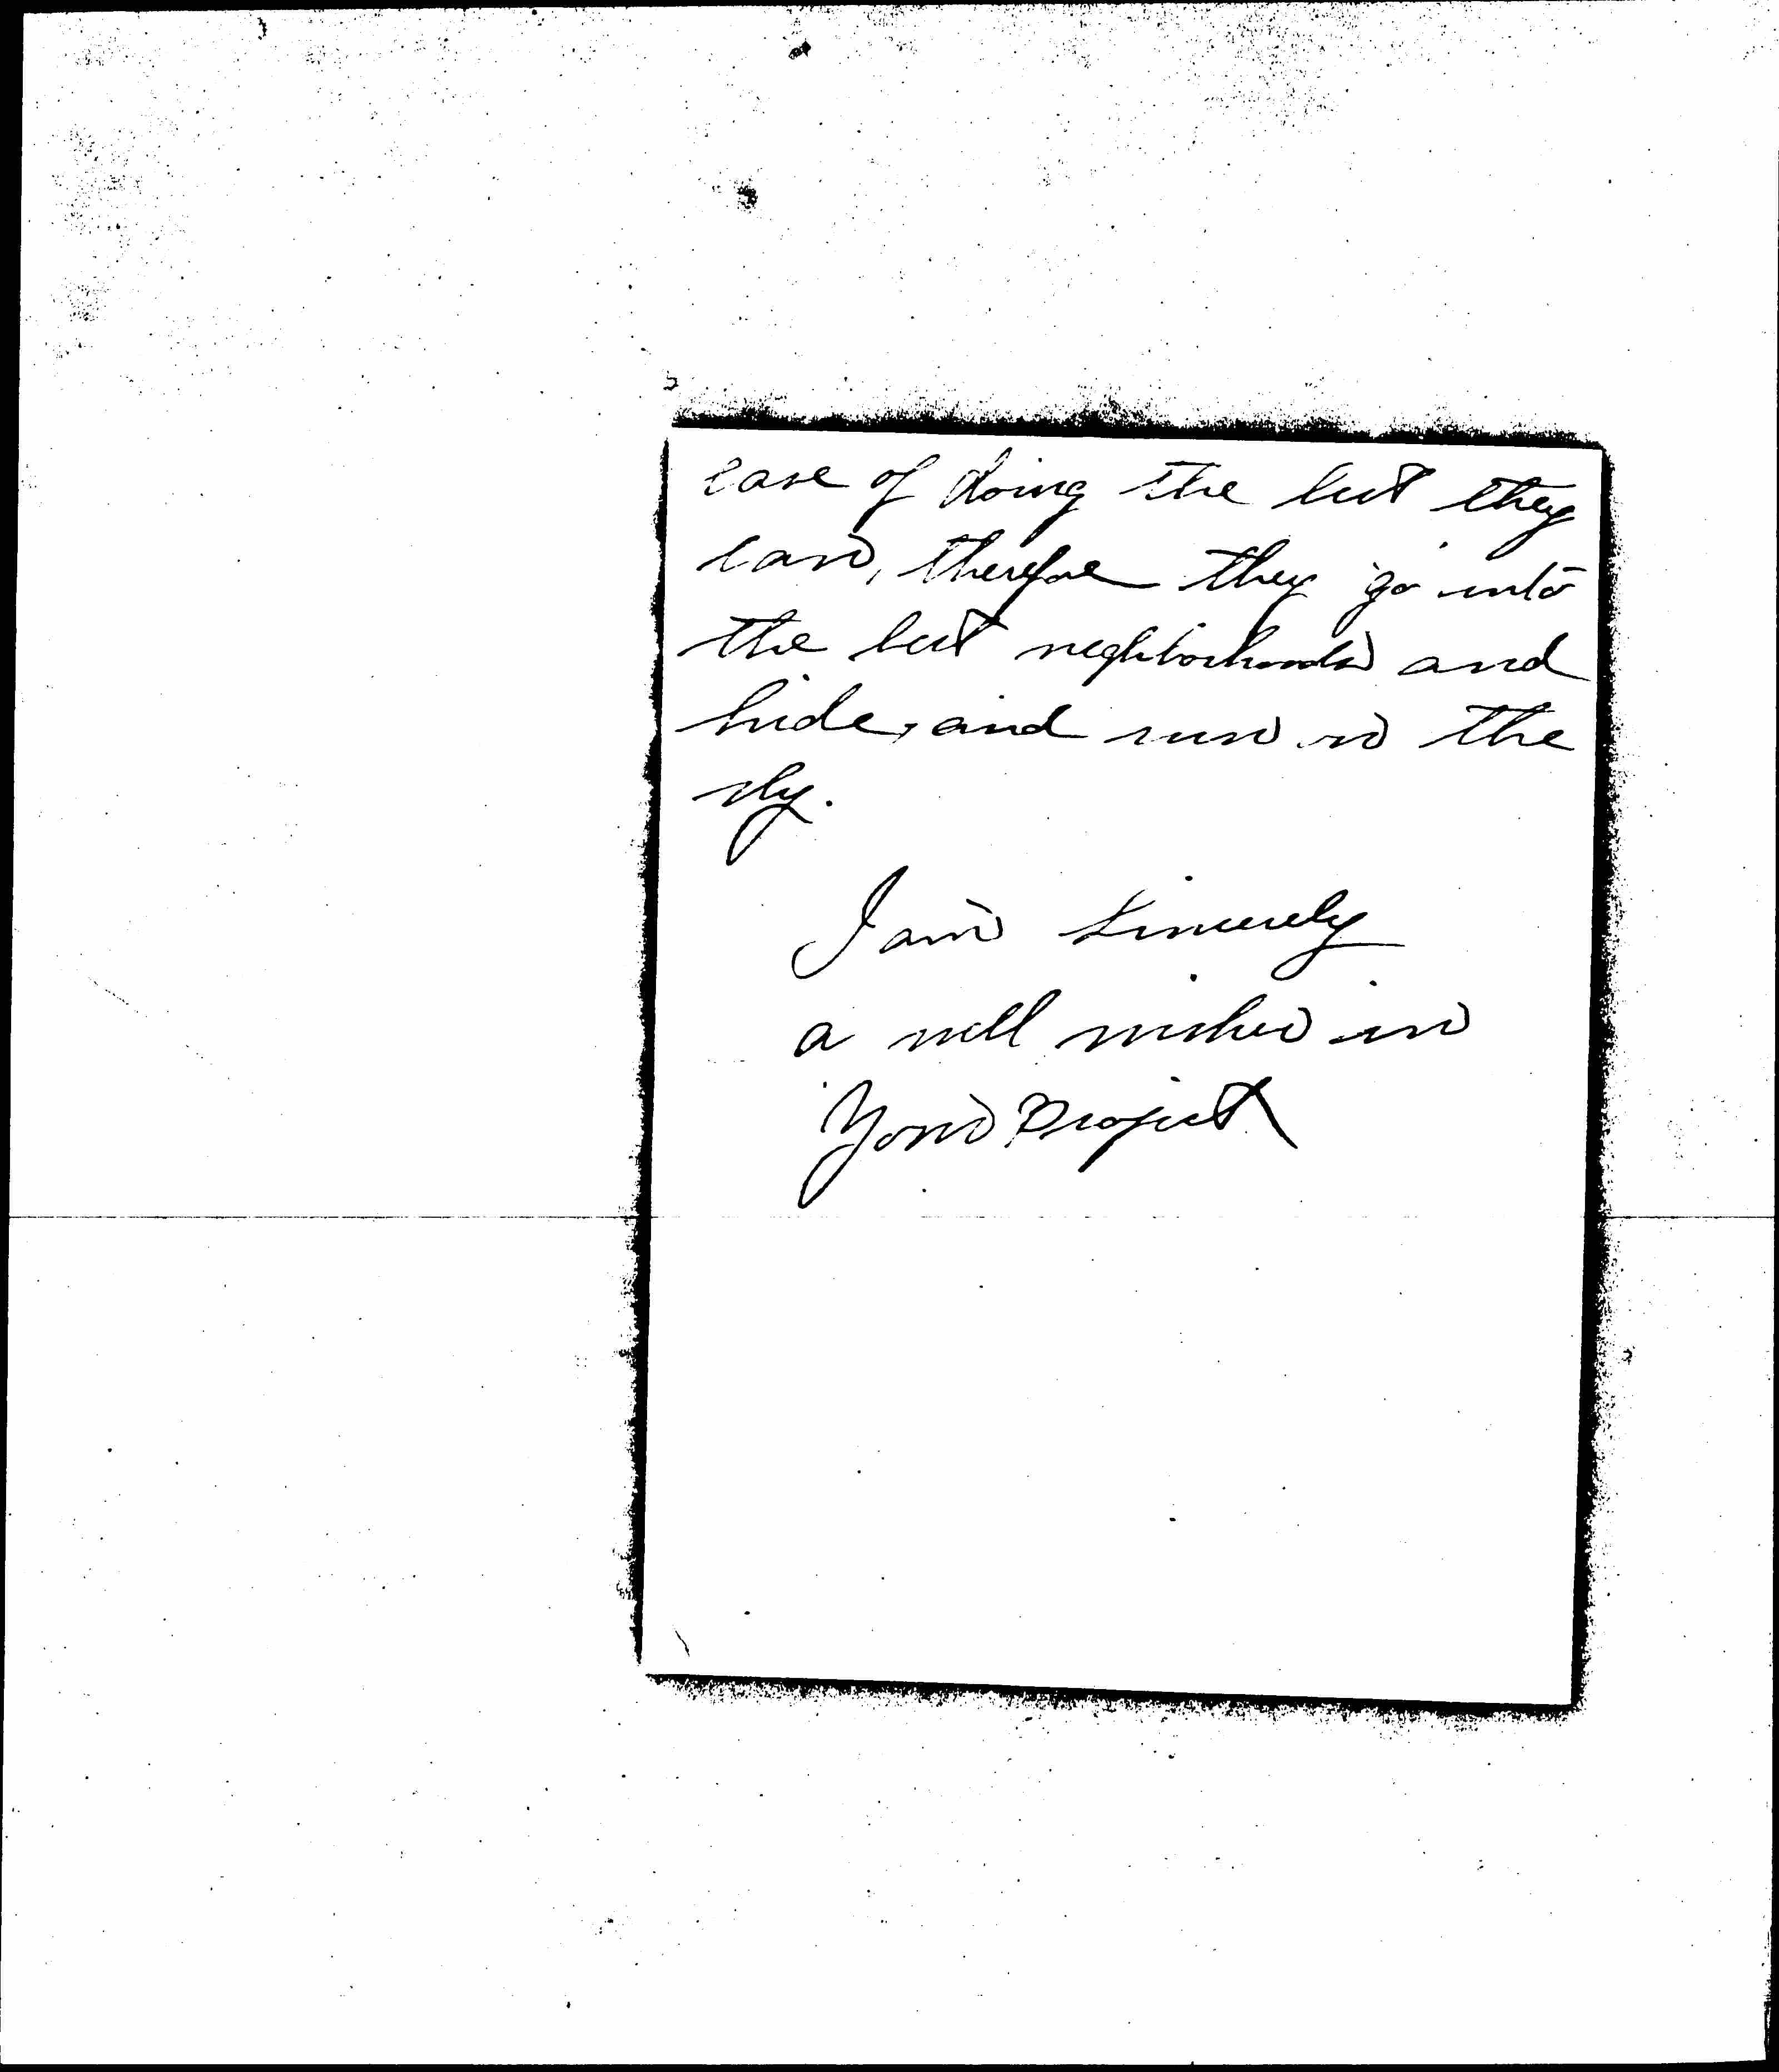 case of doing the best they
can, therefore they go into
the best neghborhoods and
hide, and run on the
sly.
I am sincerely
a well wisher in
Your Project